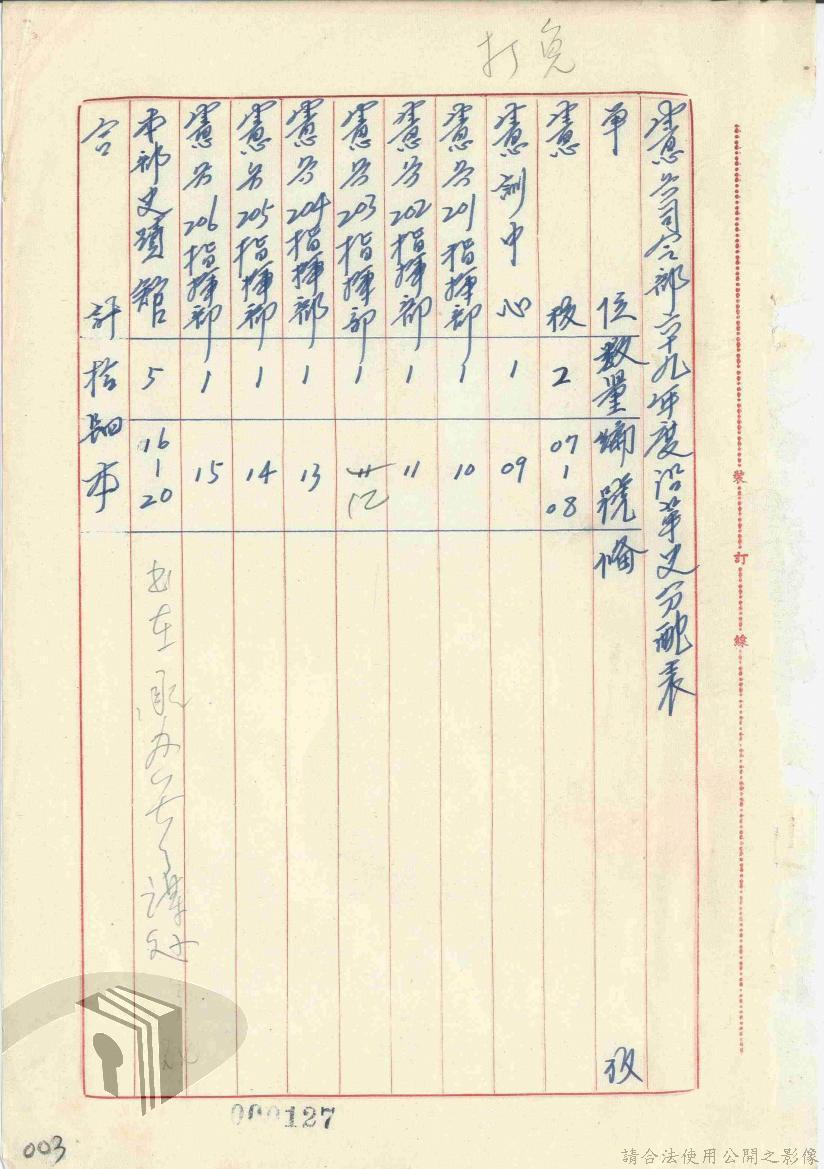 打免
憲兵司令部六十九年度沿革史分配表
單位 數量 編號 備
憲校 2 07-08
憲訓中心 1 09
憲兵201指揮部 1 10
憲兵202指揮部 1 11
憲兵203指揮部 1 12
憲兵204指揮部 1 13
憲兵205指揮部 1 14
憲兵206指揮部 1 15
本部史蹟館 5 16-20
合計 拾四本
裝訂線
000127
003
請合法使用公開之影像